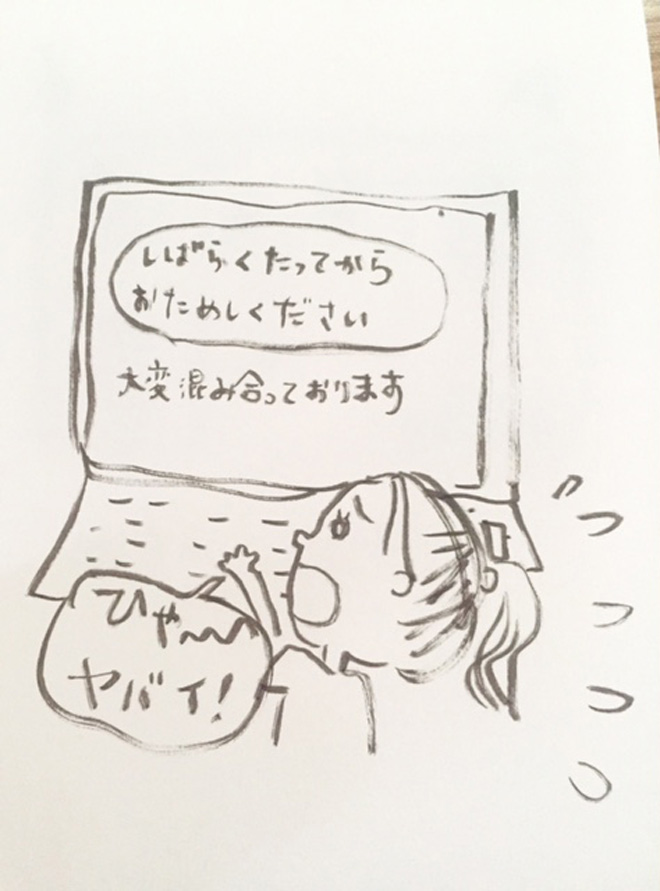 しばらくたってから
おためしください
大変混み合っております
ひゃ〜〜
ヤバイ!